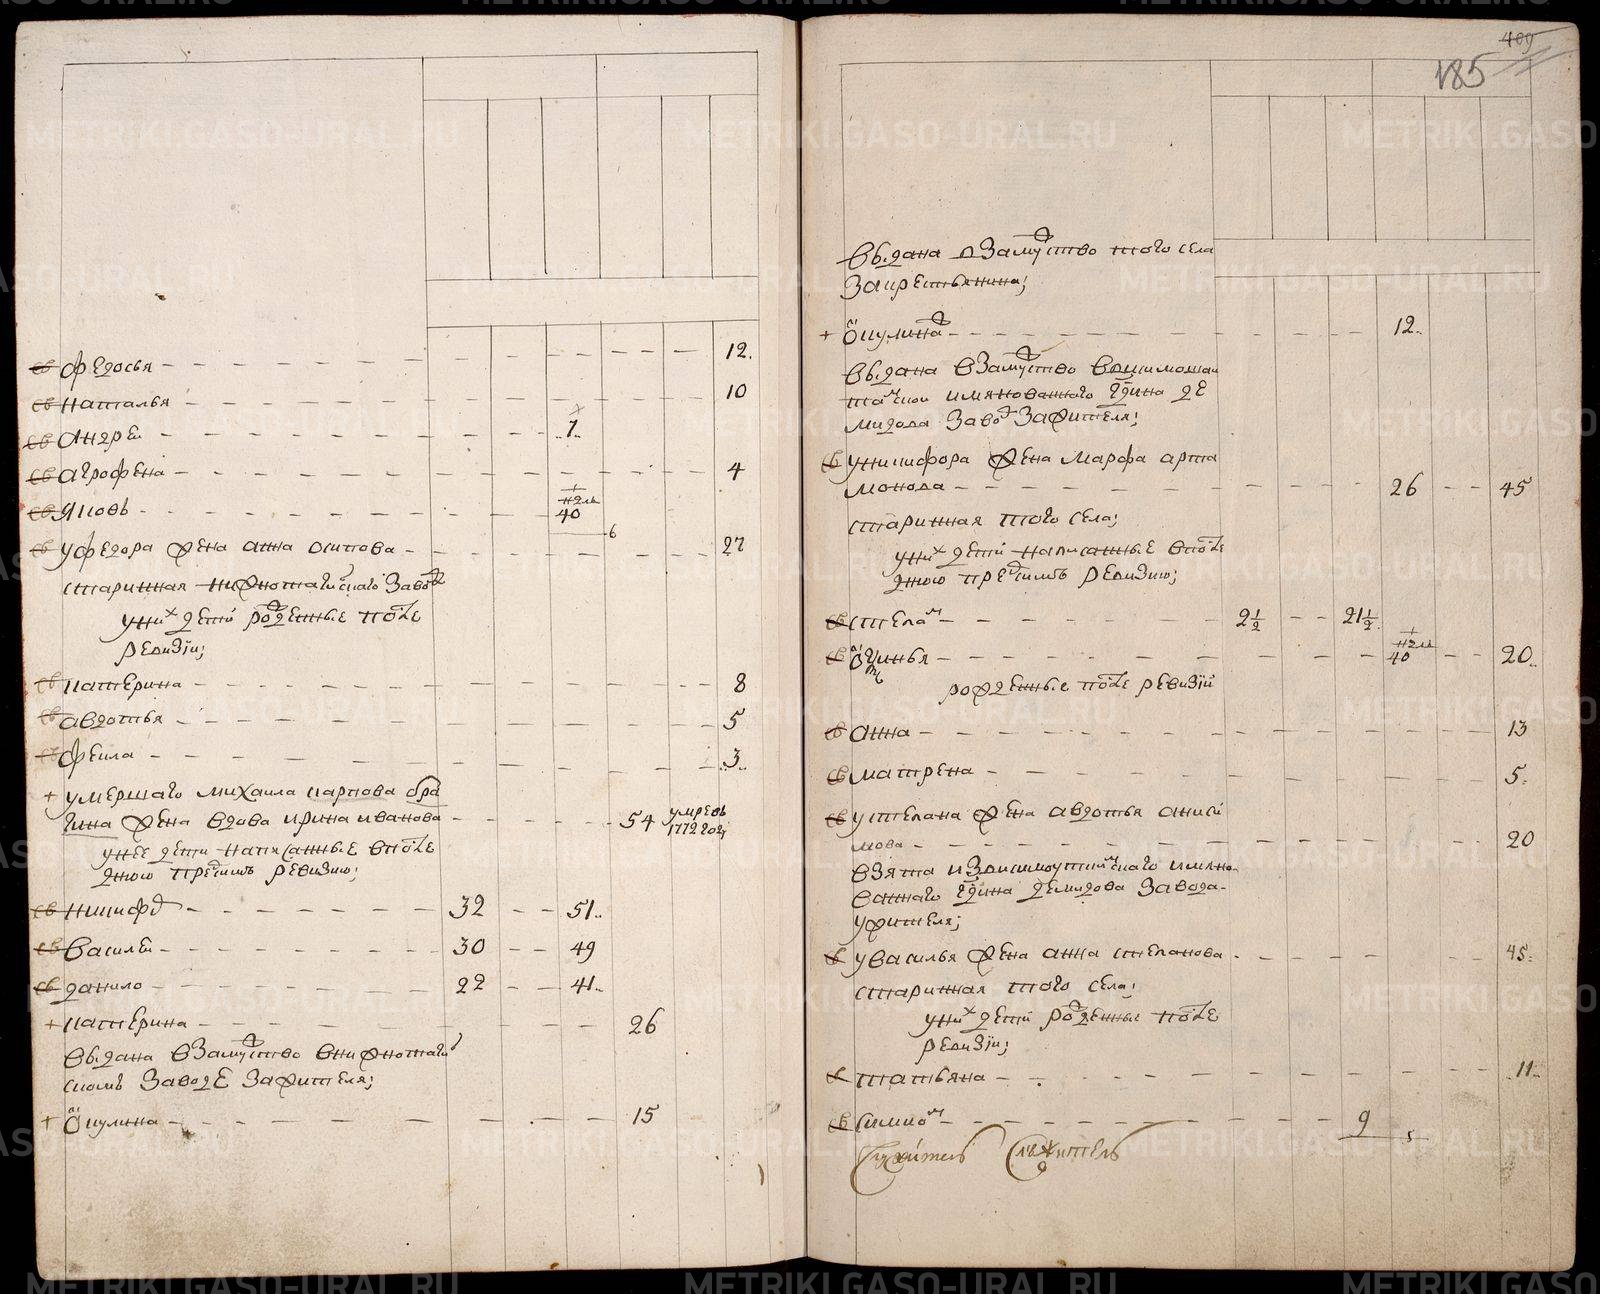 св Федосья — 12.
св Наталья — 10
св Андреи — 7.
св Агрофена — 4
св Яковъ — 40
6
св у Федора жена Анна Осипова — 27
старинная Нижнотагилскаго завода
у них детеи рожденные после
ревизiи;
св Катерина — 8
св Авдотья — 5
св Фекла — 3..
+ умершаго Михаила Карпова Бра
гина жена вдова Ирина Иванова — 54 умре въ 1772 году
у нее дети написанные в после
днюю пред симъ ревизию;
св Никифор — 32 — 51..
св Василеи — 30 — 49
св Данило — 22 — 41..
+ Катерина — 26
выдана в замужство в Нижнотагил
скомъ заводе за жителя;
+ Акулина — 15
409
185
выдана в замужство того села
за крестьянина;
+ Акулина — 12..
выдана в замужство в
имянованного Гдина Де
мидова завод за жителя;
св у Никифора жена Марфа Арта
монова — 26 — 45
старинная того села;
у них детеи написанные в после
днюю пред симъ ревизию;
св Степан — 2½ — 21½
св — 40 — 20..
рожденные после ревизiи
св Анна — 13
св Матрена — 5.
св у Степана жена Авдотья Аниси
мова — 20
взята из имяно
ванного Гдина Демидова завода
у жителя;
св у Василья жена Анна Степанова — 45.
старинная того села;
у них детеи рожденные после
ревизiи;
св Татьяна — 11..
св Симион — 9
5
METRIKI.GASO-URAL.RU